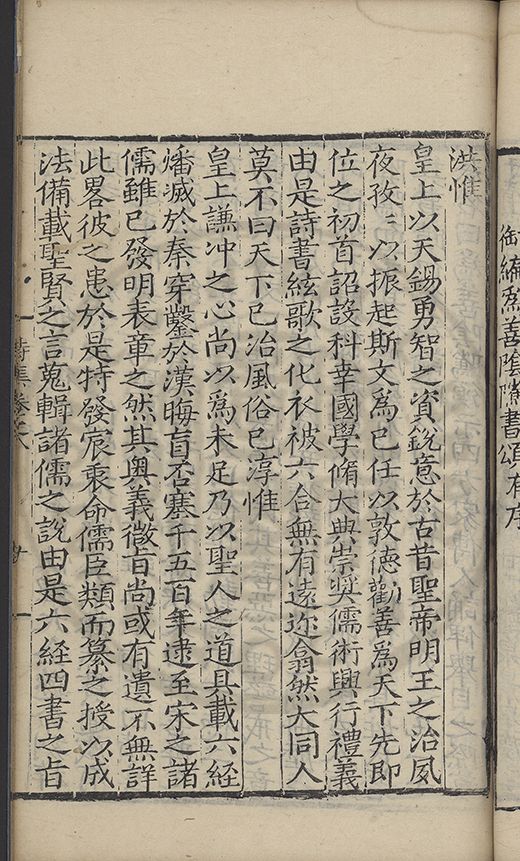 御編為善陰隲書頌有序
洪惟
皇上以天錫勇智之資銳意於古昔聖帝明王之治夙
夜孜孜以振起斯文為已任以敦德勸善為天下先即
位之初首詔設科幸國學脩大典崇奬儒術興行禮義
由是詩書絃歌之化衣被六合無有遠迩翕然大同人
莫不曰天下已治風俗已淳惟
皇上謙冲之心尚以為未足乃以聖人之道具載六經
燔滅於秦穿鑿於漢晦盲否塞千五百年逮至宋之諸
儒雖已發明表章之然其奥義微旨尚或有遺不無詳
此畧彼之患於是特發宸衷命儒臣類而纂之授以成
法備載聖賢之言蒐輯諸儒之説由是六経四書之旨
詩集卷六